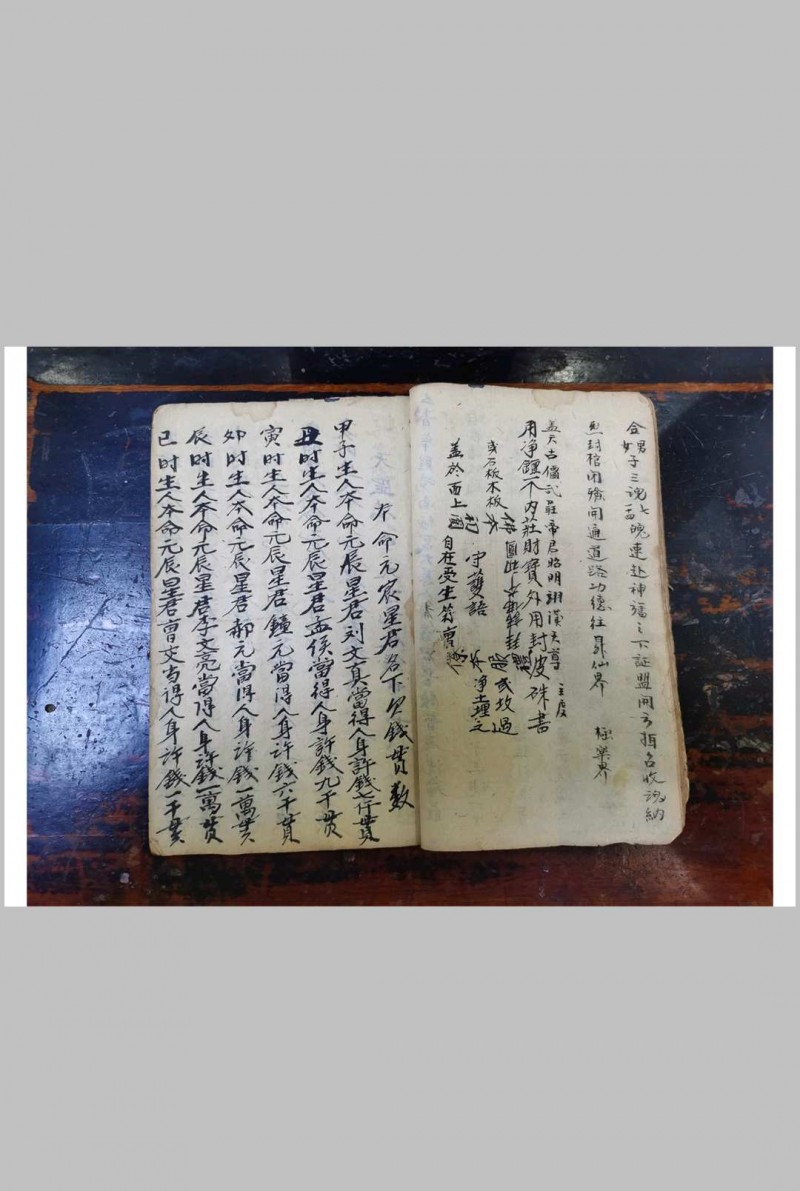 男
女子三魂七魄速赴神旛之下証盟開方揖名收魂納
封棺閉殮開通道路功德往昇仙界
極樂界
蓋天古佛武莊帝君昭明翊漢天尊
主度
用净鏗一个内莊財寳外用封皮硃書
或石板木板
守護語
净土埋之
盖於面上
自在受生
本命元宸星君名下欠錢貫数
甲子生人本命元辰星君刘文真當得人身許錢七仟貫
丑时生人本命元辰星君孟侯當得人身許錢九千貫
寅时生人本命元辰星君鐘元當得人身許錢六千貫
卯时生人本命元辰星君郝元當得人身許錢一萬貫
辰时生人本命元辰星君李文亮當得人身許錢一萬貫
巳时生人本命元辰星君曹交当得人身許錢一千貫